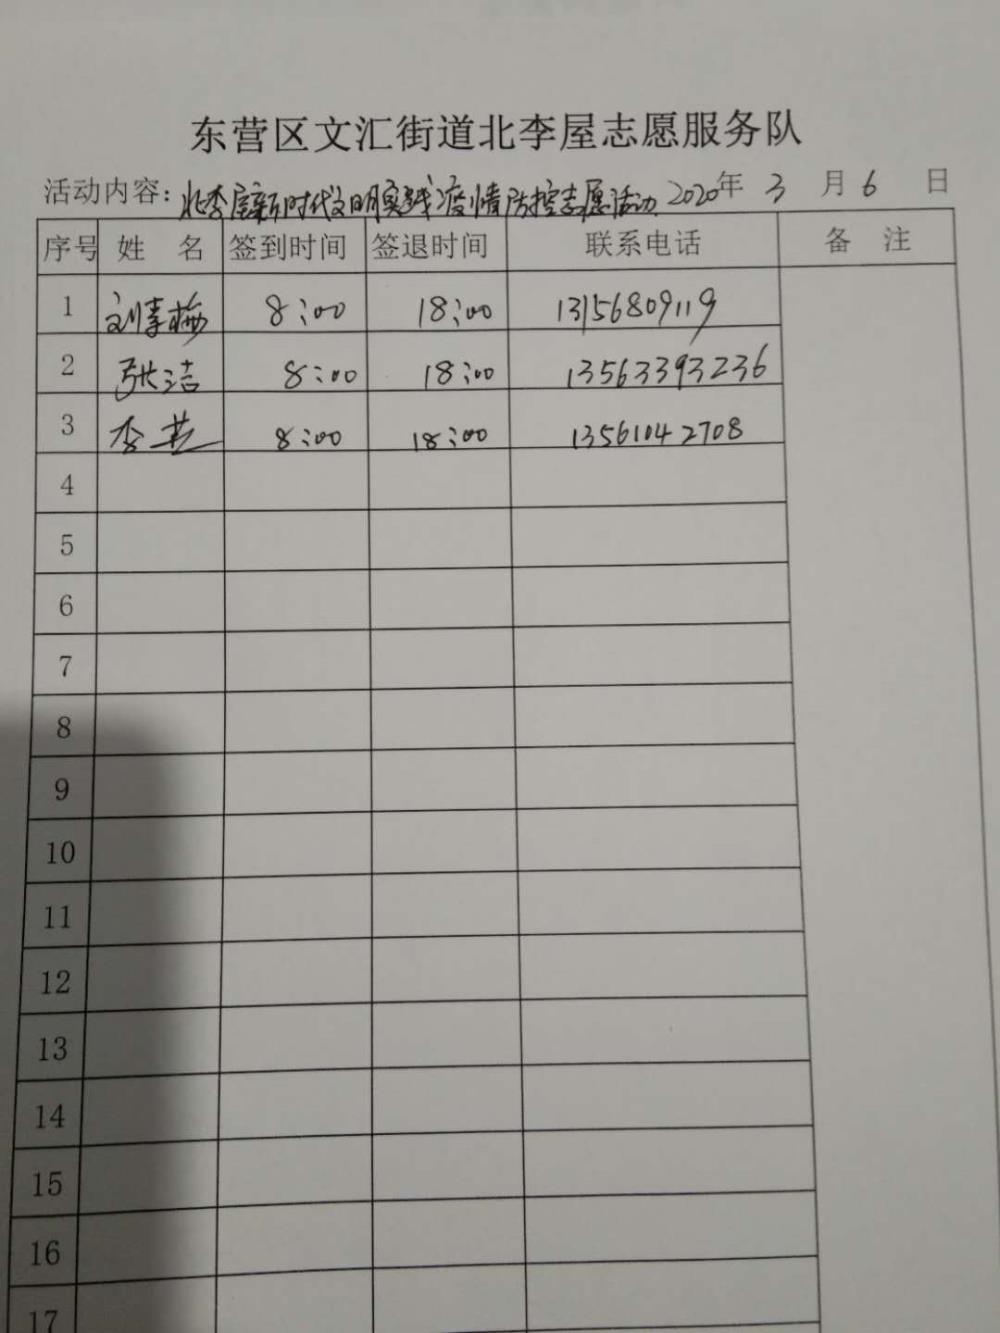 东营区文汇街道北李屋志愿服务队
活动内容：北李屋新时代文明实践疫情防控志愿活动 2020年 3 月 6 日
序号 姓 名 签到时间 签退时间 联系电话 备 注
1 刘李梅 8:00 18:00 13156809119
2 张洁 8:00 18:00 13563393236
3 李芸 8:00 18:00 13561042708
4
5
6
7
8
9
10
11
12
13
14
15
16
17